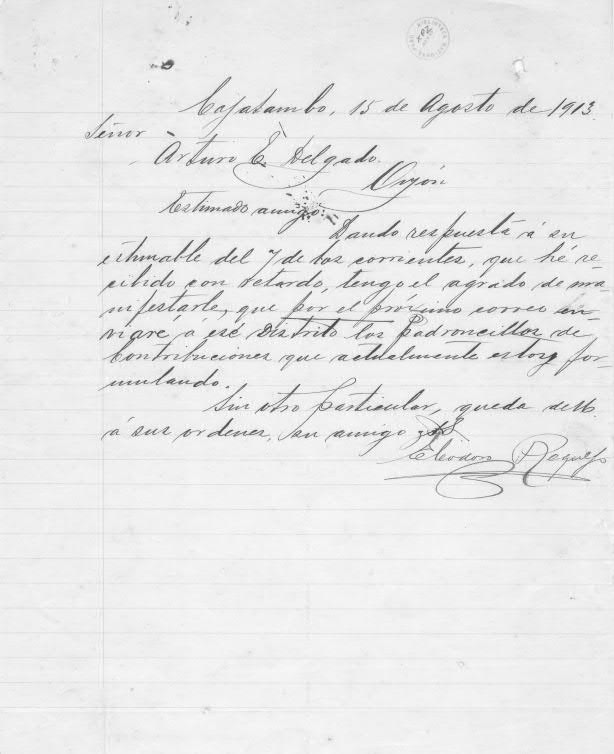 Cajatambo, 15 de Agosto de 1913.
Señor
Arturo E. Delgado.
Oyón
Estimado amigo:
Dando respuesta á su
estimable del 7 de los corrientes, que hé re
cibido con retardo, tengo el agrado de ma
nifestarle, que por el próximo correo en
viaré á ese Distrito los Padroncillos de
Contribuciones que actualmente estoy for-
mulando.
Sin otro particular, queda de U.
á sus ordenes, su amigo y SS
Eleodoro